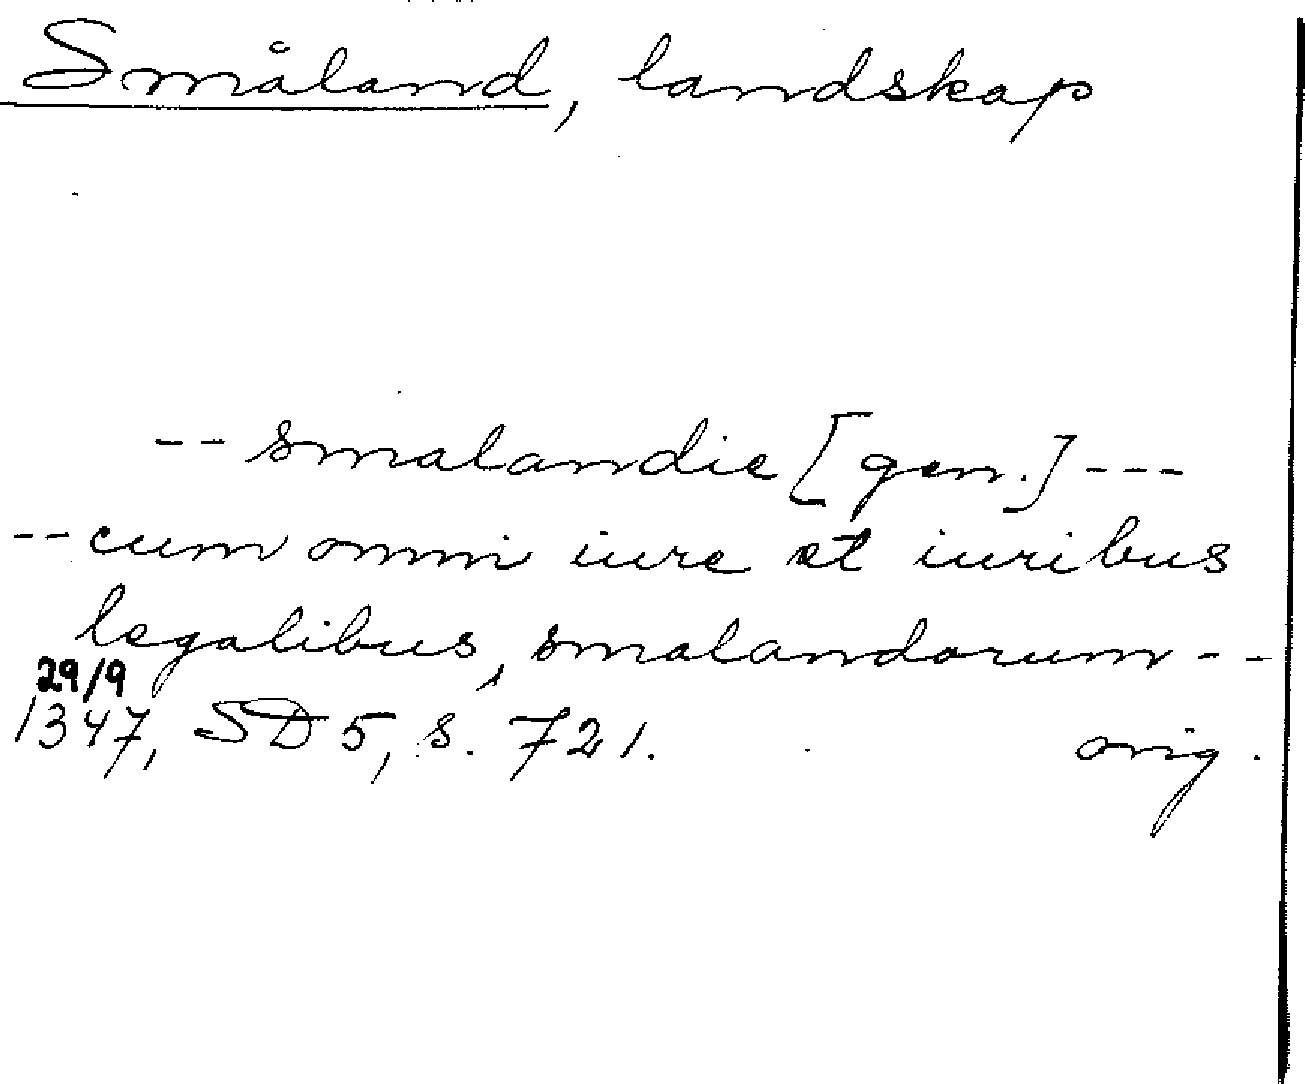 Småland, landskap
-- smalandie [gen.] ---
-- cum omni iure et iuribus
legalibus, smalandorum --
29/9
1347, SD 5, s. 721. orig.